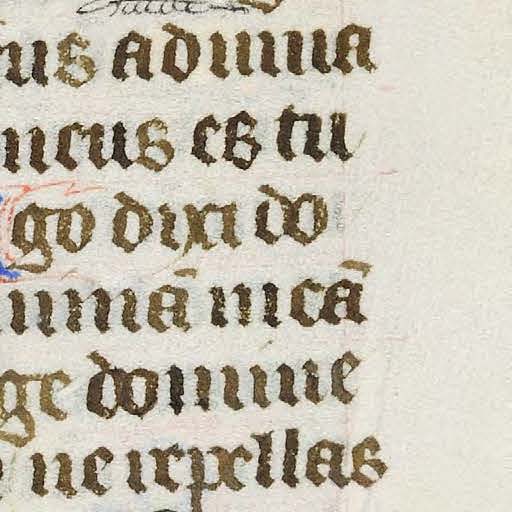 us adiuua
meus es tu
go dixi do
nimā meā
ge domine
ne irpellas